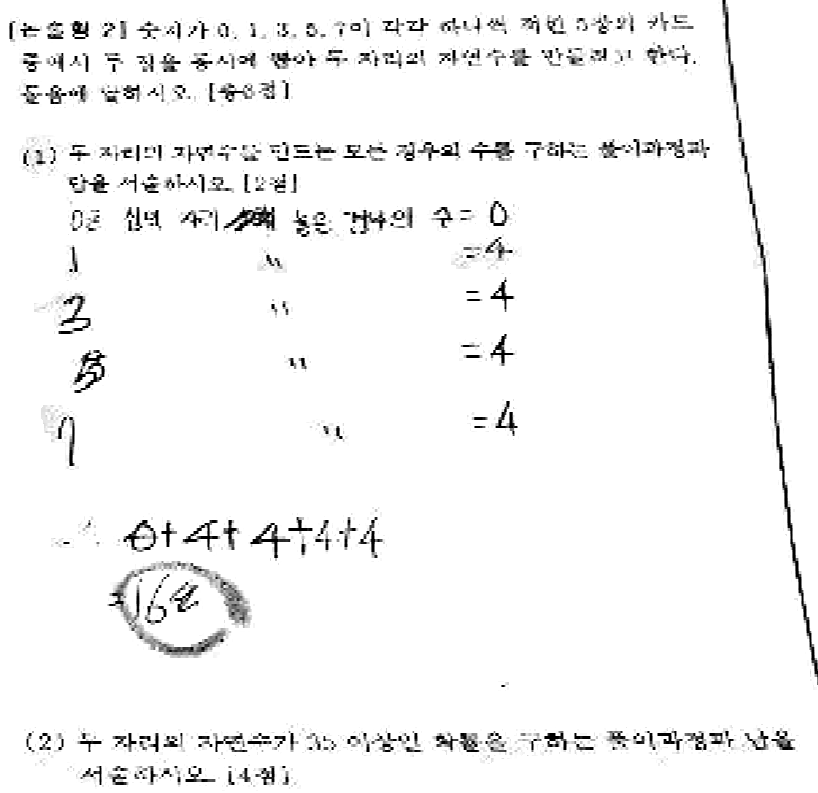 [논술형 2] 숫자가 0, 1, 3, 5, 7이 각각 하나씩 적힌 5장의 카드
중에서 두 장을 동시에 뽑아 두 자리의 자연수를 만들려고 한다.
물음에 답하시오. [총6점]
(1) 두 자리의 자연수를 만드는 모든 경우의 수를 구하는 풀이과정과
답을 서술하시오. [2점]
0을 십의 자리 놓은 경우의 수 = 0
1 〃 = 4
3 〃 = 4
5 〃 = 4
7 〃 = 4
0+4+4+4+4
=16
(2) 두 자리의 자연수가 35 이상인 확률을 구하는 풀이과정과 답을
서술하시오. [4점]